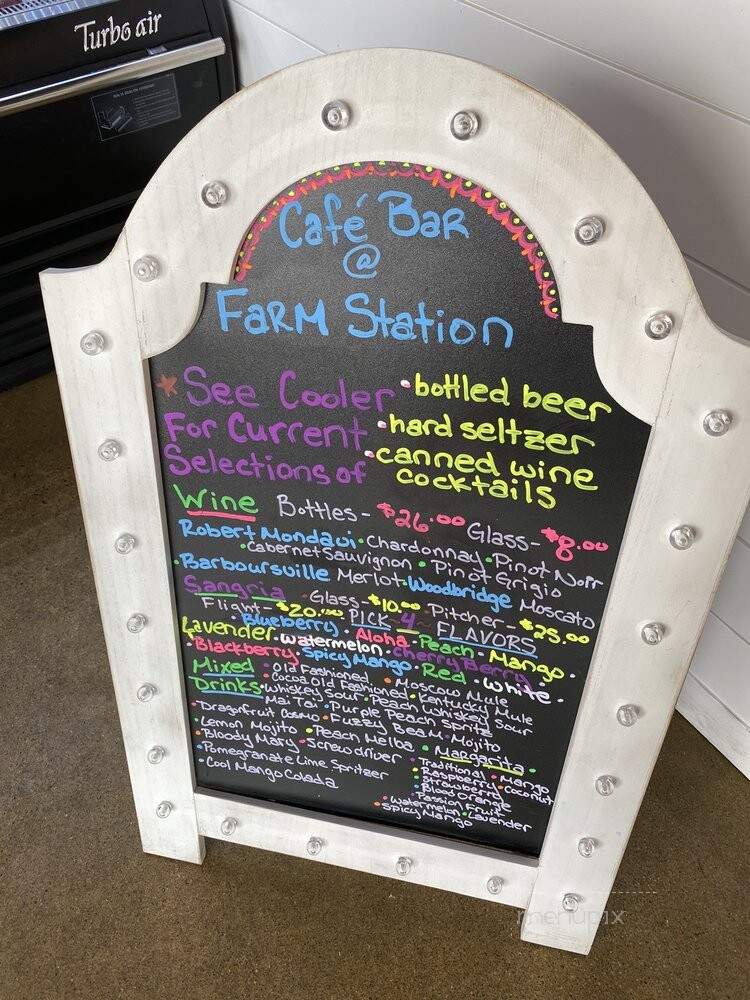 Turbo air
Café Bar
@
FARM Station
See Cooler
For Current
Selections of
• bottled beer
• hard seltzer
• canned wine
cocktails
Wine Bottles - $26.00 Glass - $8.00
Robert Mondavi • Chardonnay • Pinot Noir
• Cabernet Sauvignon • Pinot Grigio
• Barboursville Merlot • Woodbridge Moscato
Sangria • Glass - $10.00 Pitcher - $25.00
Flight - $20.00 PICK 4 FLAVORS
Lavender • Blueberry • Aloha • Peach • Mango •
• Blackberry • watermelon • Cherry Berry •
• Spicy Mango • Red • White •
Mixed
Drinks
• Old Fashioned • Moscow Mule
• Cocoa Old Fashioned • Kentucky Mule
• Whiskey Sour • Peach Whiskey Sour
Mai Tai • Purple Peach Spritz
• Dragonfruit Cosmo • Fuzzy Beam • Mojito
• Lemon Mojito • Peach Melba
• Bloody Mary • Screwdriver
• Pomegranate Lime Spritzer
• Cool Mango Colada
• Margarita •
• Traditional • Mango
• Raspberry • Coconut
• Strawberry
• Blood Orange
• Passion Fruit
• Watermelon • Lavender
• Spicy Mango
menupix